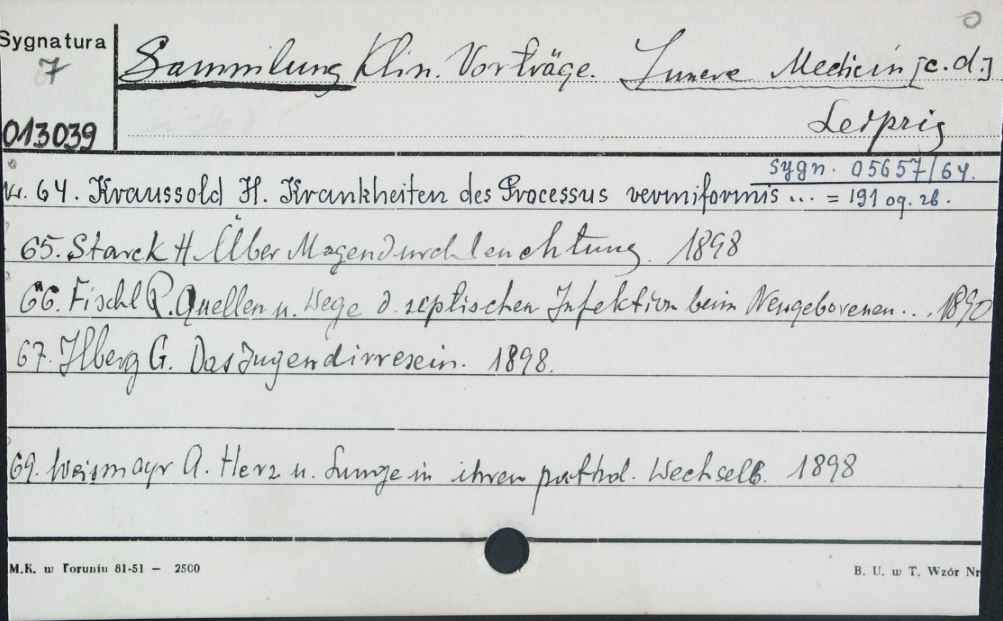 Sygnatura
7
013039
Sammlung Klin. Vorträge. Innere Medicin [c.d.]
Leipzig
sygn. 05657/64.
Nr. 64. Kraussold H. Krankheiten des Processus vermiformis ... = 191 og. zb.
65. Starck H Über Magendurchleuchtung. 1898
66. Fischl R. Quellen u. Wege d. septischen Infektion beim Neugeborenen... 1890
67. Ilberg G. Das Jugendirresein. 1898.
69. Weismayr A. Herz u. Lunge in ihren pathol. Wechselb. 1898
M.K. w Toruniu 81-51 — 2500
B. U. w T. Wzór Nr